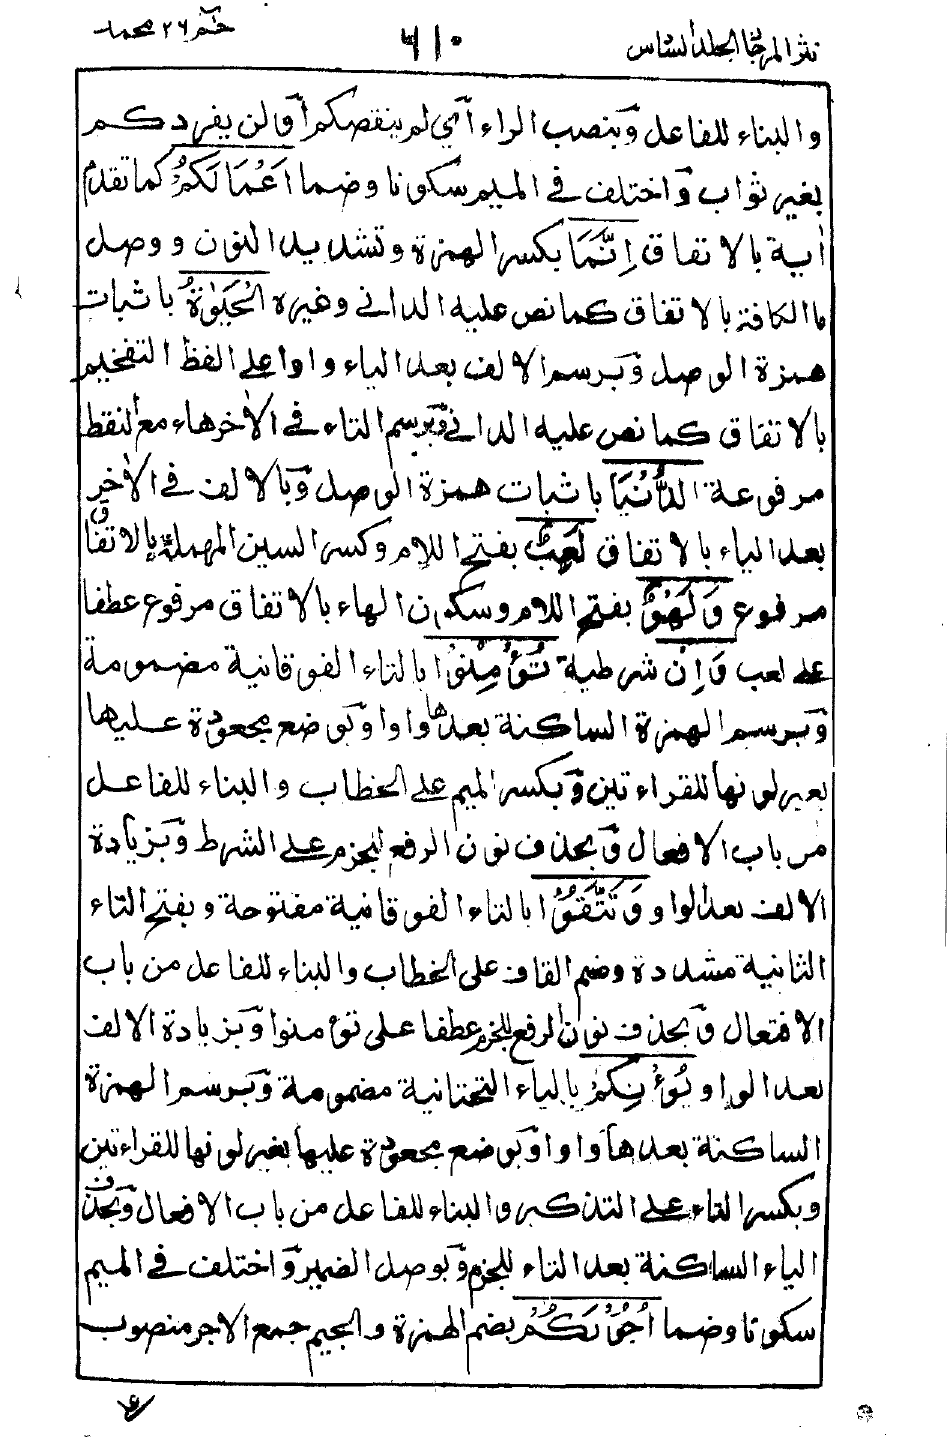 نثر المرجان الجلد السادس ٦١٠ حٰم ٢٦ محمد
والبناء للفاعل وبنصب الراء اي لم ينقصكم او لن يفردكم
بغير ثواب واختلف في الميم سكونا وضما اَعْمَالَكُمْ كما تقدم
اٰية بالاتفاق اِنَّمَا بكسر الهمزة وتشديد النون ووصل
ما الكافة بالاتفاق كما نص عليه الداني وغيره الْحَيٰوةُ باثبات
همزة الوصل وبرسم الالف بعد الياء واوا على لفظ التفخيم
بالاتفاق كما نص عليه الداني وبرسم التاء في الاٰخر هاء مع النقط
مرفوعة الدُّنْيَا باثبات همزة الوصل وبالالف في الاٰخر
بعد الياء بالاتفاق لَعِبٌ بفتح اللام وكسر السين المهملة بالاتفاق
مرفوع وَلَهْوٌ بفتح اللام وسكون الهاء بالاتفاق مرفوع عطفا
على لعب وَاِنْ شرطية تُؤْمِنُوْا بالتاء الفوقانية مضمومة
وبرسم الهمزة الساكنة بعدها واوا وبوضع مجعودة عليها
بغير لونها للقراءتين وبكسر الميم على الخطاب والبناء للفاعل
من باب الافعال وبحذف نون الرفع للجزم على الشرط وبزيادة
الالف بعد الواو وَتَتَّقُوْا بالتاء الفوقانية مفتوحة وبفتح التاء
الثانية مشددة وضم القاف على الخطاب والبناء للفاعل من باب
الافتعال وبحذف نون الرفع للجزم عطفا على تؤمنوا وبزيادة الالف
بعد الواو يُؤْتِكُمْ بالياء التحتانية مضمومة وبرسم الهمزة
الساكنة بعدها واوا وبوضع مجعودة عليها بغير لونها للقراءتين
وبكسر التاء على التذكير والبناء للفاعل من باب الافعال وبحذف
الياء الساكنة بعد التاء للجزم وبوصل الضمير واختلف في الميم
سكونا وضما اُجُوْرَكُمْ بضم الهمزة والجيم جمع الاجر منصوب